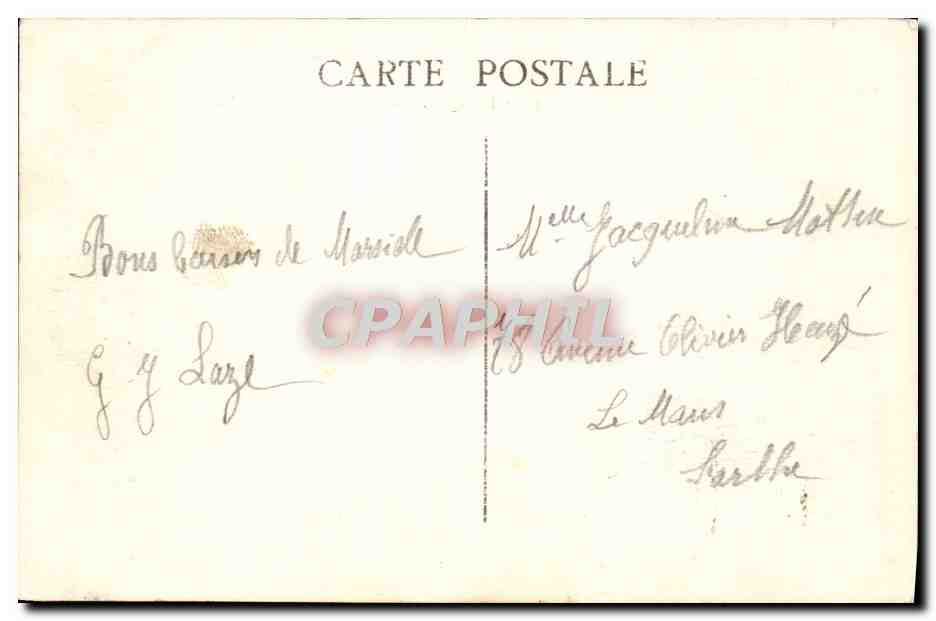 CARTE POSTALE
Bons baisers de
G Y Laze
Melle Jacqueline
78 Avenue Olivier Heuzé
Le Mans
Sarthe
CPAPHIL